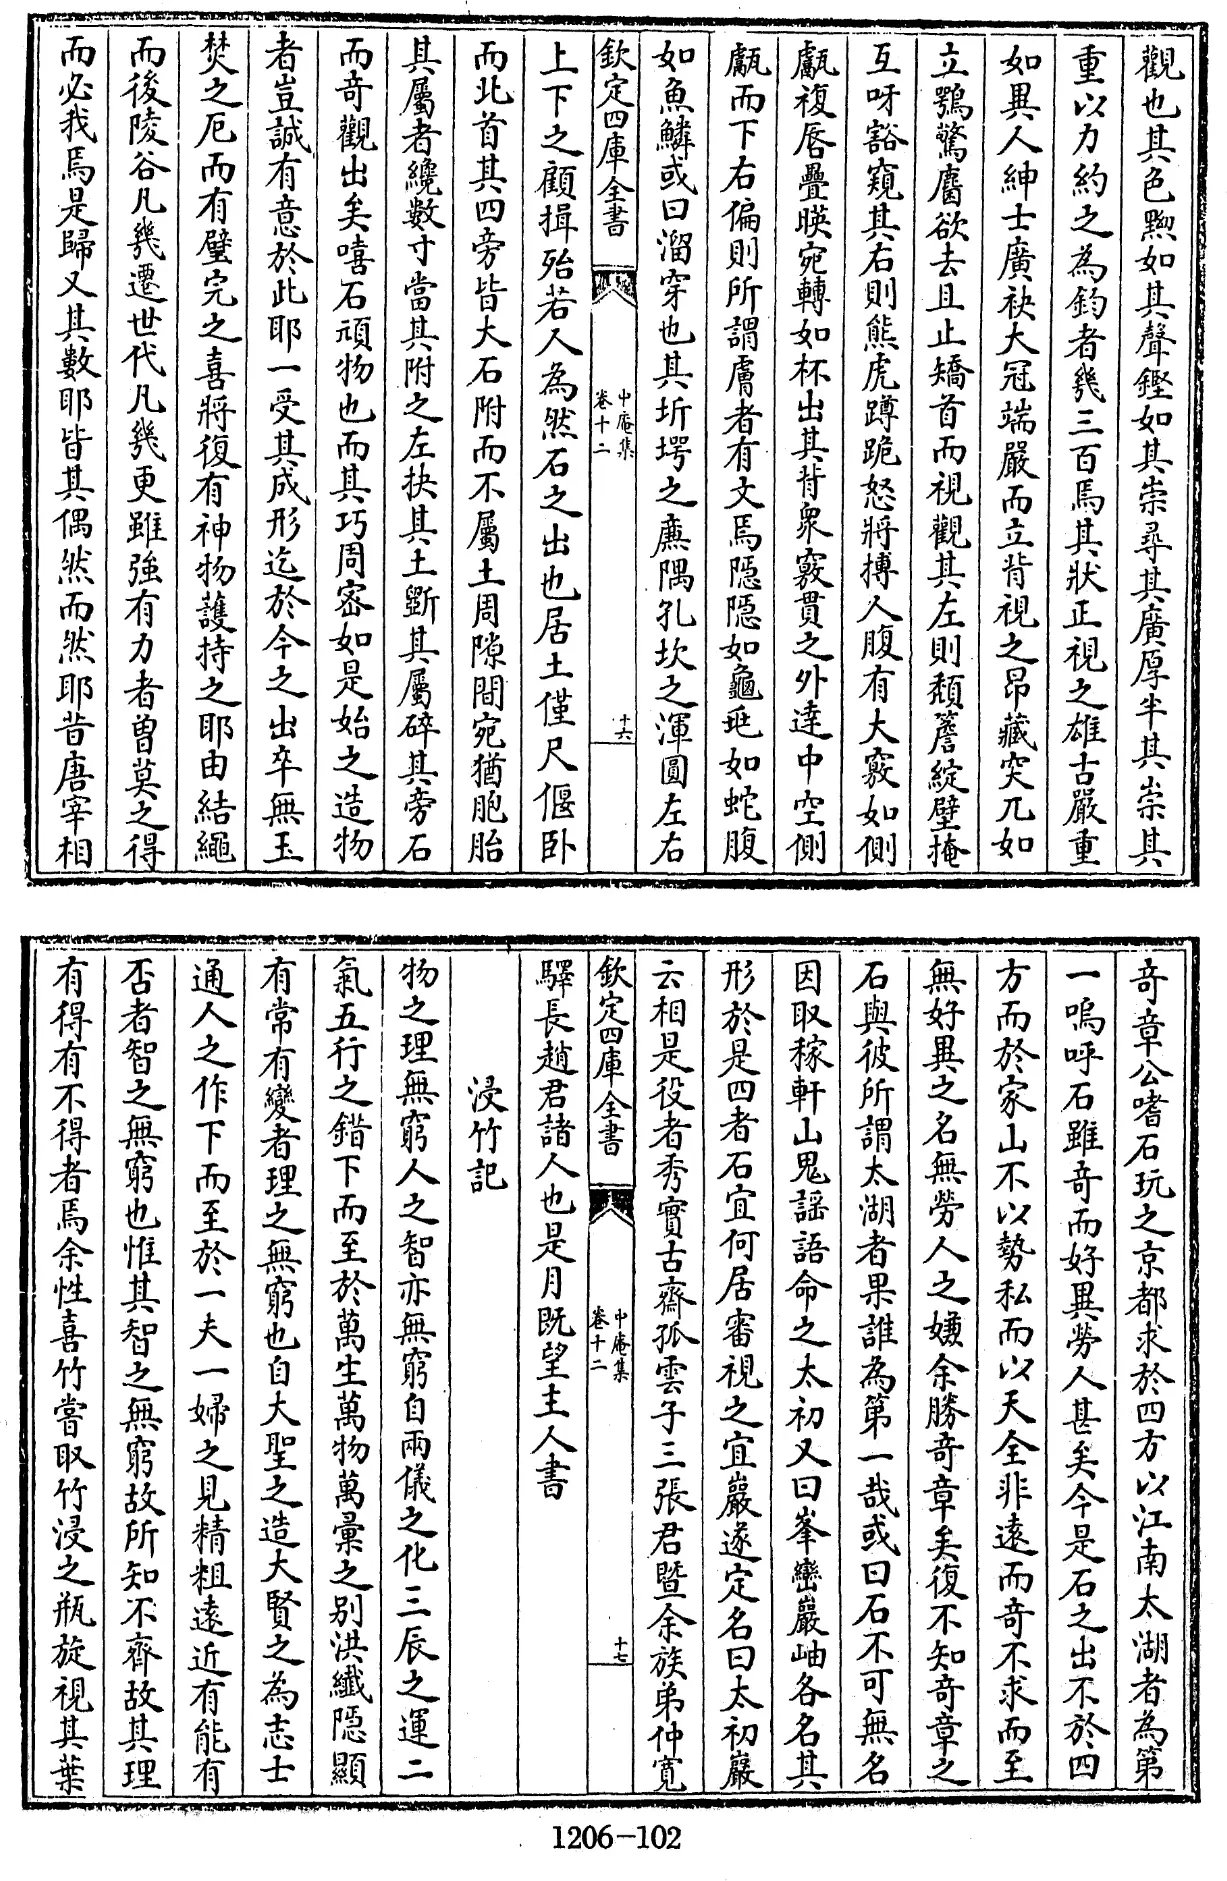 觀也其色黝如其聲鏗如其崇尋其廣厚半其崇其
重以力約之為鈞者幾三百焉其狀正視之雄古嚴重
如異人紳士廣袂大冠端嚴而立背視之昂藏突兀如
立鶚驚麏欲去且止矯首而視觀其左則頹簷綻壁掩
互呀豁窺其右則熊虎蹲跪怒將搏人腹有大竅如側
甗複唇疊暎宛轉如杯出其背衆竅貫之外達中空側
甗而下右偏則所謂膚者有文焉隱隱如龜㐌如蛇腹
如魚鱗或曰溜穿也其圻堮之廉隅孔坎之渾圓左右
欽定四庫全書
中庵集
卷十二
十六
上下之顧揖殆若人為然石之出也居土僅尺偃卧
而北首其四旁皆大石附而不屬土周隙間宛猶胞胎
其屬者纔數寸當其附之左抉其土斷其屬碎其旁石
而奇觀出矣嘻石頑物也而其巧周宻如是始之造物
者豈誠有意於此耶一受其成形迄於今之出卒無玉
焚之厄而有璧完之喜將復有神物護持之耶由結繩
而後陵谷凡幾遷世代凡幾更雖強有力者曽莫之得
而必我焉是歸又其數耶皆其偶然而然耶昔唐宰相
奇章公嗜石玩之京都求於四方以江南太湖者為第
一嗚呼石雖奇而好異勞人甚矣今是石之出不於四
方而於家山不以勢私而以天全非遠而奇不求而至
無好異之名無勞人之嫌余勝奇章矣復不知奇章之
石與彼所謂太湖者果誰為第一哉或曰石不可無名
因取稼軒山鬼謡語命之太初又曰峯巒巖岫各名其
形於是四者石宜何居審視之宜巖遂定名曰太初巖
云相是役者秀實古齋孤雲子三張君暨余族弟仲寛
欽定四庫全書
中庵集
卷十二
十七
驛長趙君諸人也是月既望主人書
浸竹記
物之理無窮人之智亦無窮自兩儀之化三辰之運二
氣五行之錯下而至於萬生萬物萬彙之别洪纎隱顯
有常有變者理之無窮也自大聖之造大賢之為志士
通人之作下而至於一夫一婦之見精粗遠近有能有
否者智之無窮也惟其智之無窮故所知不齊故其理
有得有不得者焉余性喜竹嘗取竹浸之瓶旋視其葉
1206-102